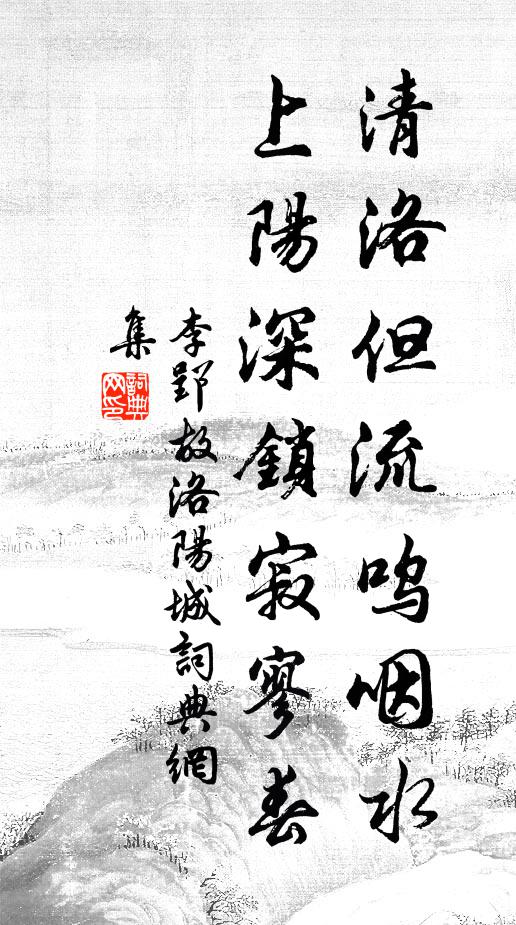 清洛但流嗚咽水
上陽深鎖寂寥春
李郢故洛陽城詞典網
集
詞典
网印